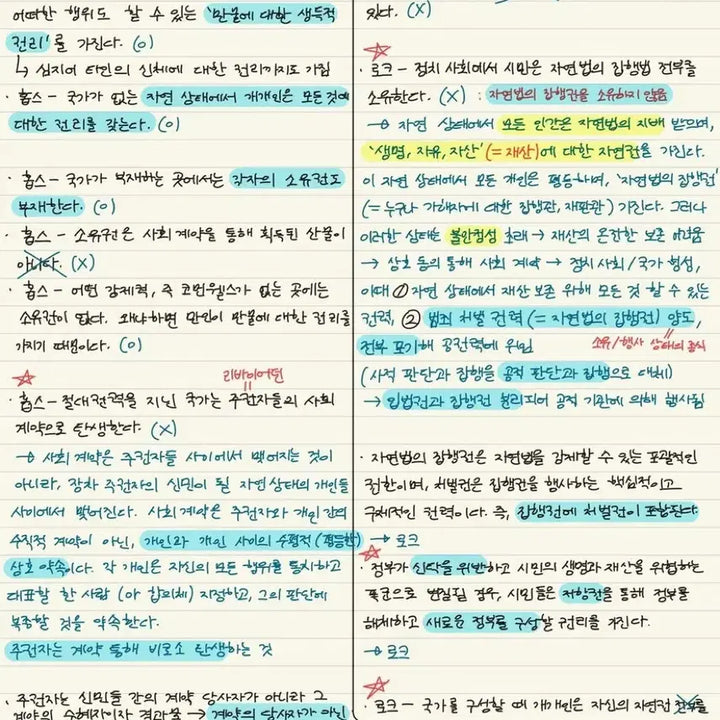 어떠한 행위도 할 수 있는 '만물에 대한 생득적
권리'를 가진다. (O)
↳ 심지어 타인의 신체에 대한 권리까지도 가짐
· 홉스 - 국가가 없는 자연 상태에서 개개인은 모든 것에
대한 권리를 갖는다. (O)
· 홉스 - 국가가 부재하는 곳에서는 각자의 소유권도
부재한다. (O)
· 홉스 - 소유권은 사회 계약을 통해 획득된 산물이
아니다. (X)
· 홉스 - 어떤 강제력, 즉 코먼웰스가 없는 곳에는
소유권이 없다. 왜냐하면 만인이 만물에 대한 권리를
가지기 때문이다. (O)
리바이어던
· 홉스 - 절대권력을 지닌 국가는 주권자들의 사회
계약으로 탄생한다. (X)
→ 사회 계약은 주권자들 사이에서 맺어지는 것이
아니라, 장차 주권자의 신민이 될 자연상태의 개인들
사이에서 맺어진다. 사회계약은 주권자와 개인 간의
수직적 계약이 아닌, 개인과 개인 사이의 수평적 (평등한)
상호 약속이다. 각 개인은 자신의 모든 행위를 통치하고
대표할 한 사람 (or 합의체) 지정하고, 그의 판단에
복종할 것을 약속한다.
주권자는 계약 통해 비로소 탄생하는 것
· 주권자는 신민들 간의 계약 당사자가 아니라 그
계약의 수혜자이자 결과물 → 계약의 당사자가 아닌
있다. (X)
· 로크 - 정치 사회에서 시민은 자연법의 집행법 전부를
소유한다. (X) : 자연법의 집행권을 소유하지 않음
→ 자연 상태에서 모든 인간은 자연법의 지배 받으며,
'생명, 자유, 자산' (= 재산)에 대한 자연권을 가진다.
이 자연 상태에서 모든 개인은 평등하며, '자연법의 집행권'
(= 누구나 가해자에 대한 집행관, 재판관) 가진다. 그러나
이러한 상태는 불안정성 초래 → 재산의 온전한 보존 어려움
→ 상호 동의 통해 사회 계약 → 정치 사회/국가 형성,
이때 ① 자연 상태에서 재산 보존 위해 모든 것 할 수 있는
권력, ② 범죄 처벌 권력 (= 자연법의 집행권) 양도,
전부 포기해 공권력에 위임
소유/행사 상태의 종식
(사적 판단과 집행을 공적 판단과 집행으로 대체)
→ 입법권과 집행권 분리되어 공적 기관에 의해 행사됨
· 자연법의 집행권은 자연법을 강제할 수 있는 포괄적인
권한이며, 처벌권은 집행권을 행사하는 핵심적이고
구체적인 권력이다. 즉, 집행권에 처벌권이 포함된다
→ 로크
· 정부가 신탁을 위반하고 시민의 생명과 재산을 위협하는
폭군으로 변질될 경우, 시민들은 저항권을 통해 정부를
해체하고 새로운 정부를 구성할 권리를 가진다.
→ 로크
· 로크 - 국가를 구성할 때 개개인은 자신의 자연권 전부를